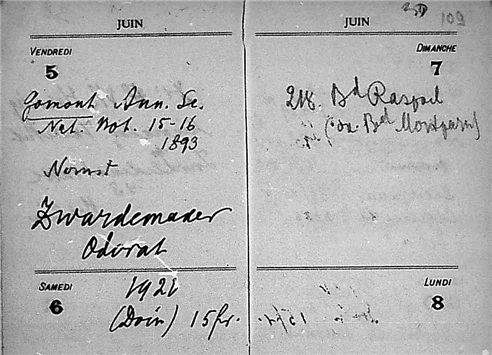 JUIN
VENDREDI
5
Gomont Ann. Sc.
Nat. Bot. 15-16
1893
Nernst
Zwardemaker
Odorat
SAMEDI
6
1921
(Doin) 15 fr.
JUIN
109
DIMANCHE
7
218. Bd Raspail
Bd Montparn)
LUNDI
8